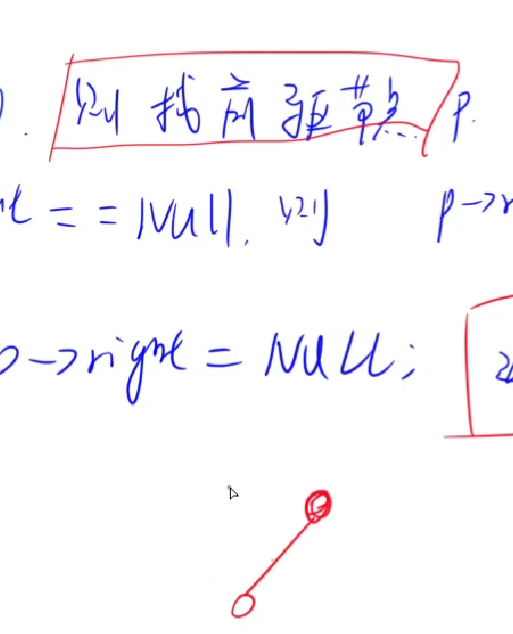 ). 则 找前驱节点 p.
ht == NULL, 则 p->r
p->right = NULL;